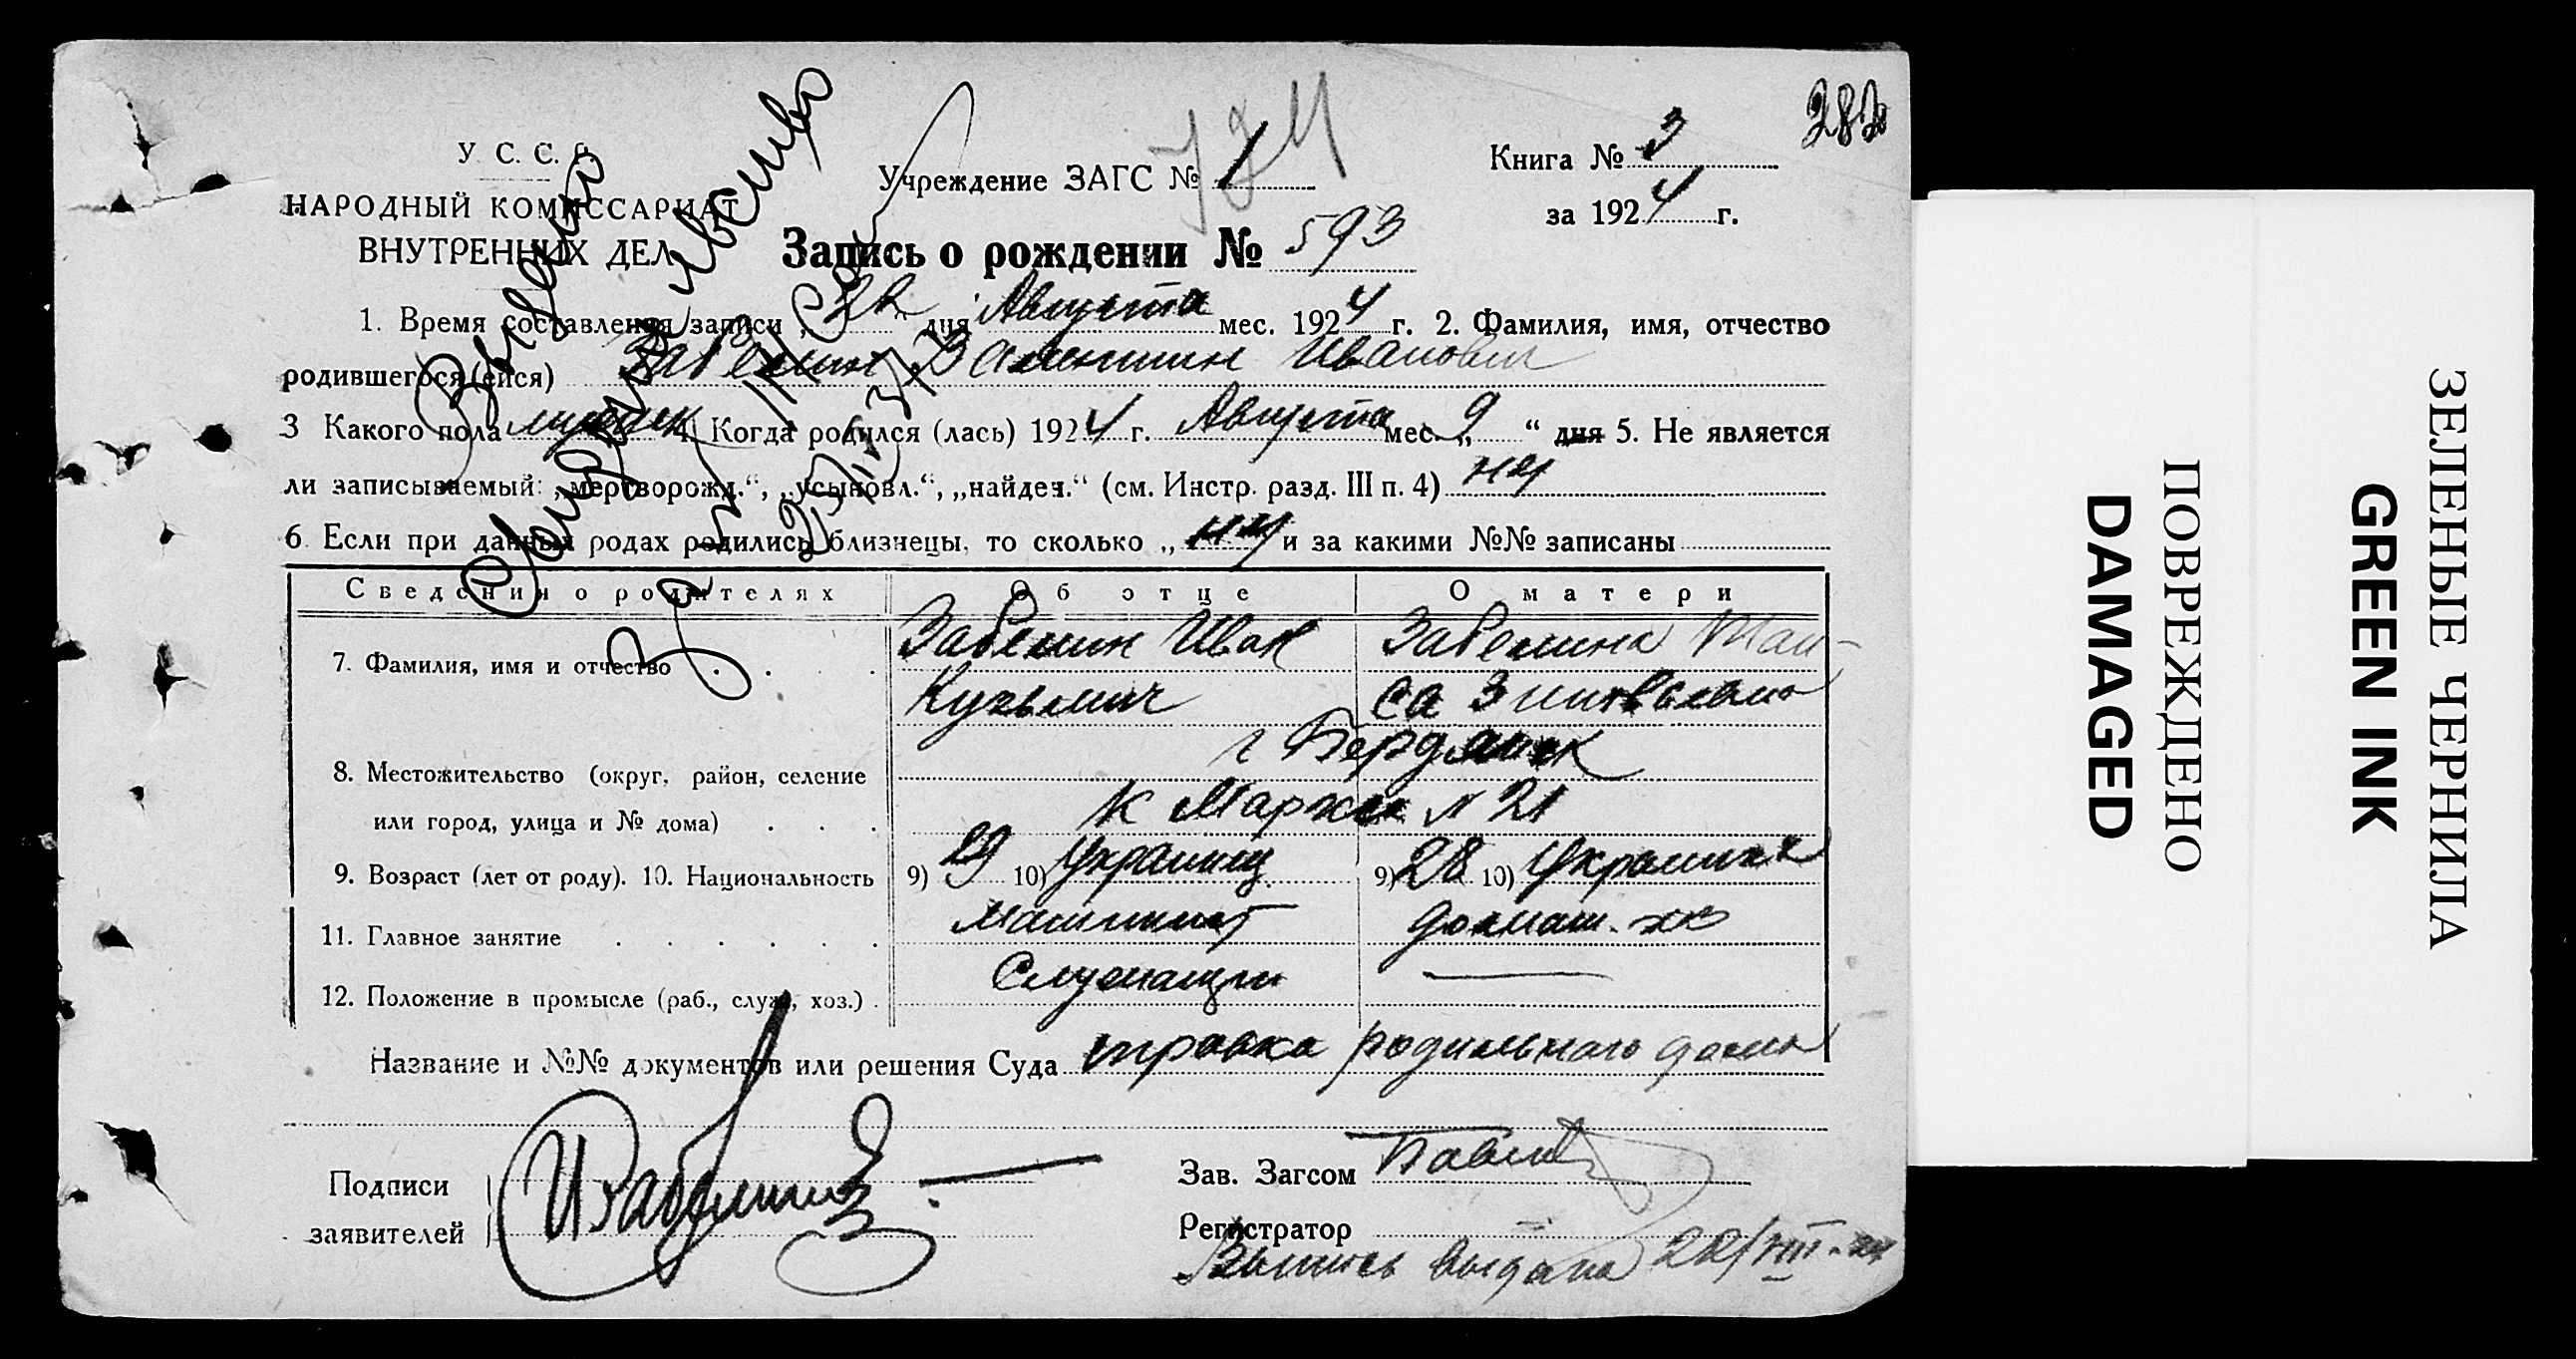 282
У. С. С. Р.
НАРОДНЫЙ КОМИССАРИАТ
ВНУТРЕННИХ ДЕЛ
Учреждение ЗАГС № 1
Книга № 3
за 1924 г.
Запись о рождении № 593
1. Время составления записи „22“ дня Августа мес. 1924 г. 2. Фамилия, имя, отчество
родившегося (ейся) Забелин Валентин Иванович
3 Какого пола мужск 4. Когда родился (лась) 1924 г. Августа мес. „9“ дня 5. Не является
ли записываемый: „мертворожд.“, „усыновл.“, „найден.“ (см. Инстр. разд. III п. 4) нет
6. Если при данных родах родились близнецы, то сколько „нет и за какими №№ записаны
Сведения о родителях Об отце О матери
7. Фамилия, имя и отчество Забелин Иван Забелина Таи-
Кузьмич са Зиновьевна
8. Местожительство (округ, район, селение г Бердянск
или город, улица и № дома) К Маркса № 21
9. Возраст (лет от роду). 10. Национальность 9) 29 10) Украинец 9) 28 10) Украинка
11. Главное занятие машинист домаш. хоз
12. Положение в промысле (раб., служ., хоз.) Служащий
Название и №№ документов или решения Суда справка родильного дома
Подписи
заявителей
ИЗабелин
Зав. Загсом
Регистратор
Выпись выдана 22/VIII-24
Выдано
Свидетельство
ПОВРЕЖДЕНО
DAMAGED
ЗЕЛЕНЫЕ ЧЕРНИЛА
GREEN INK